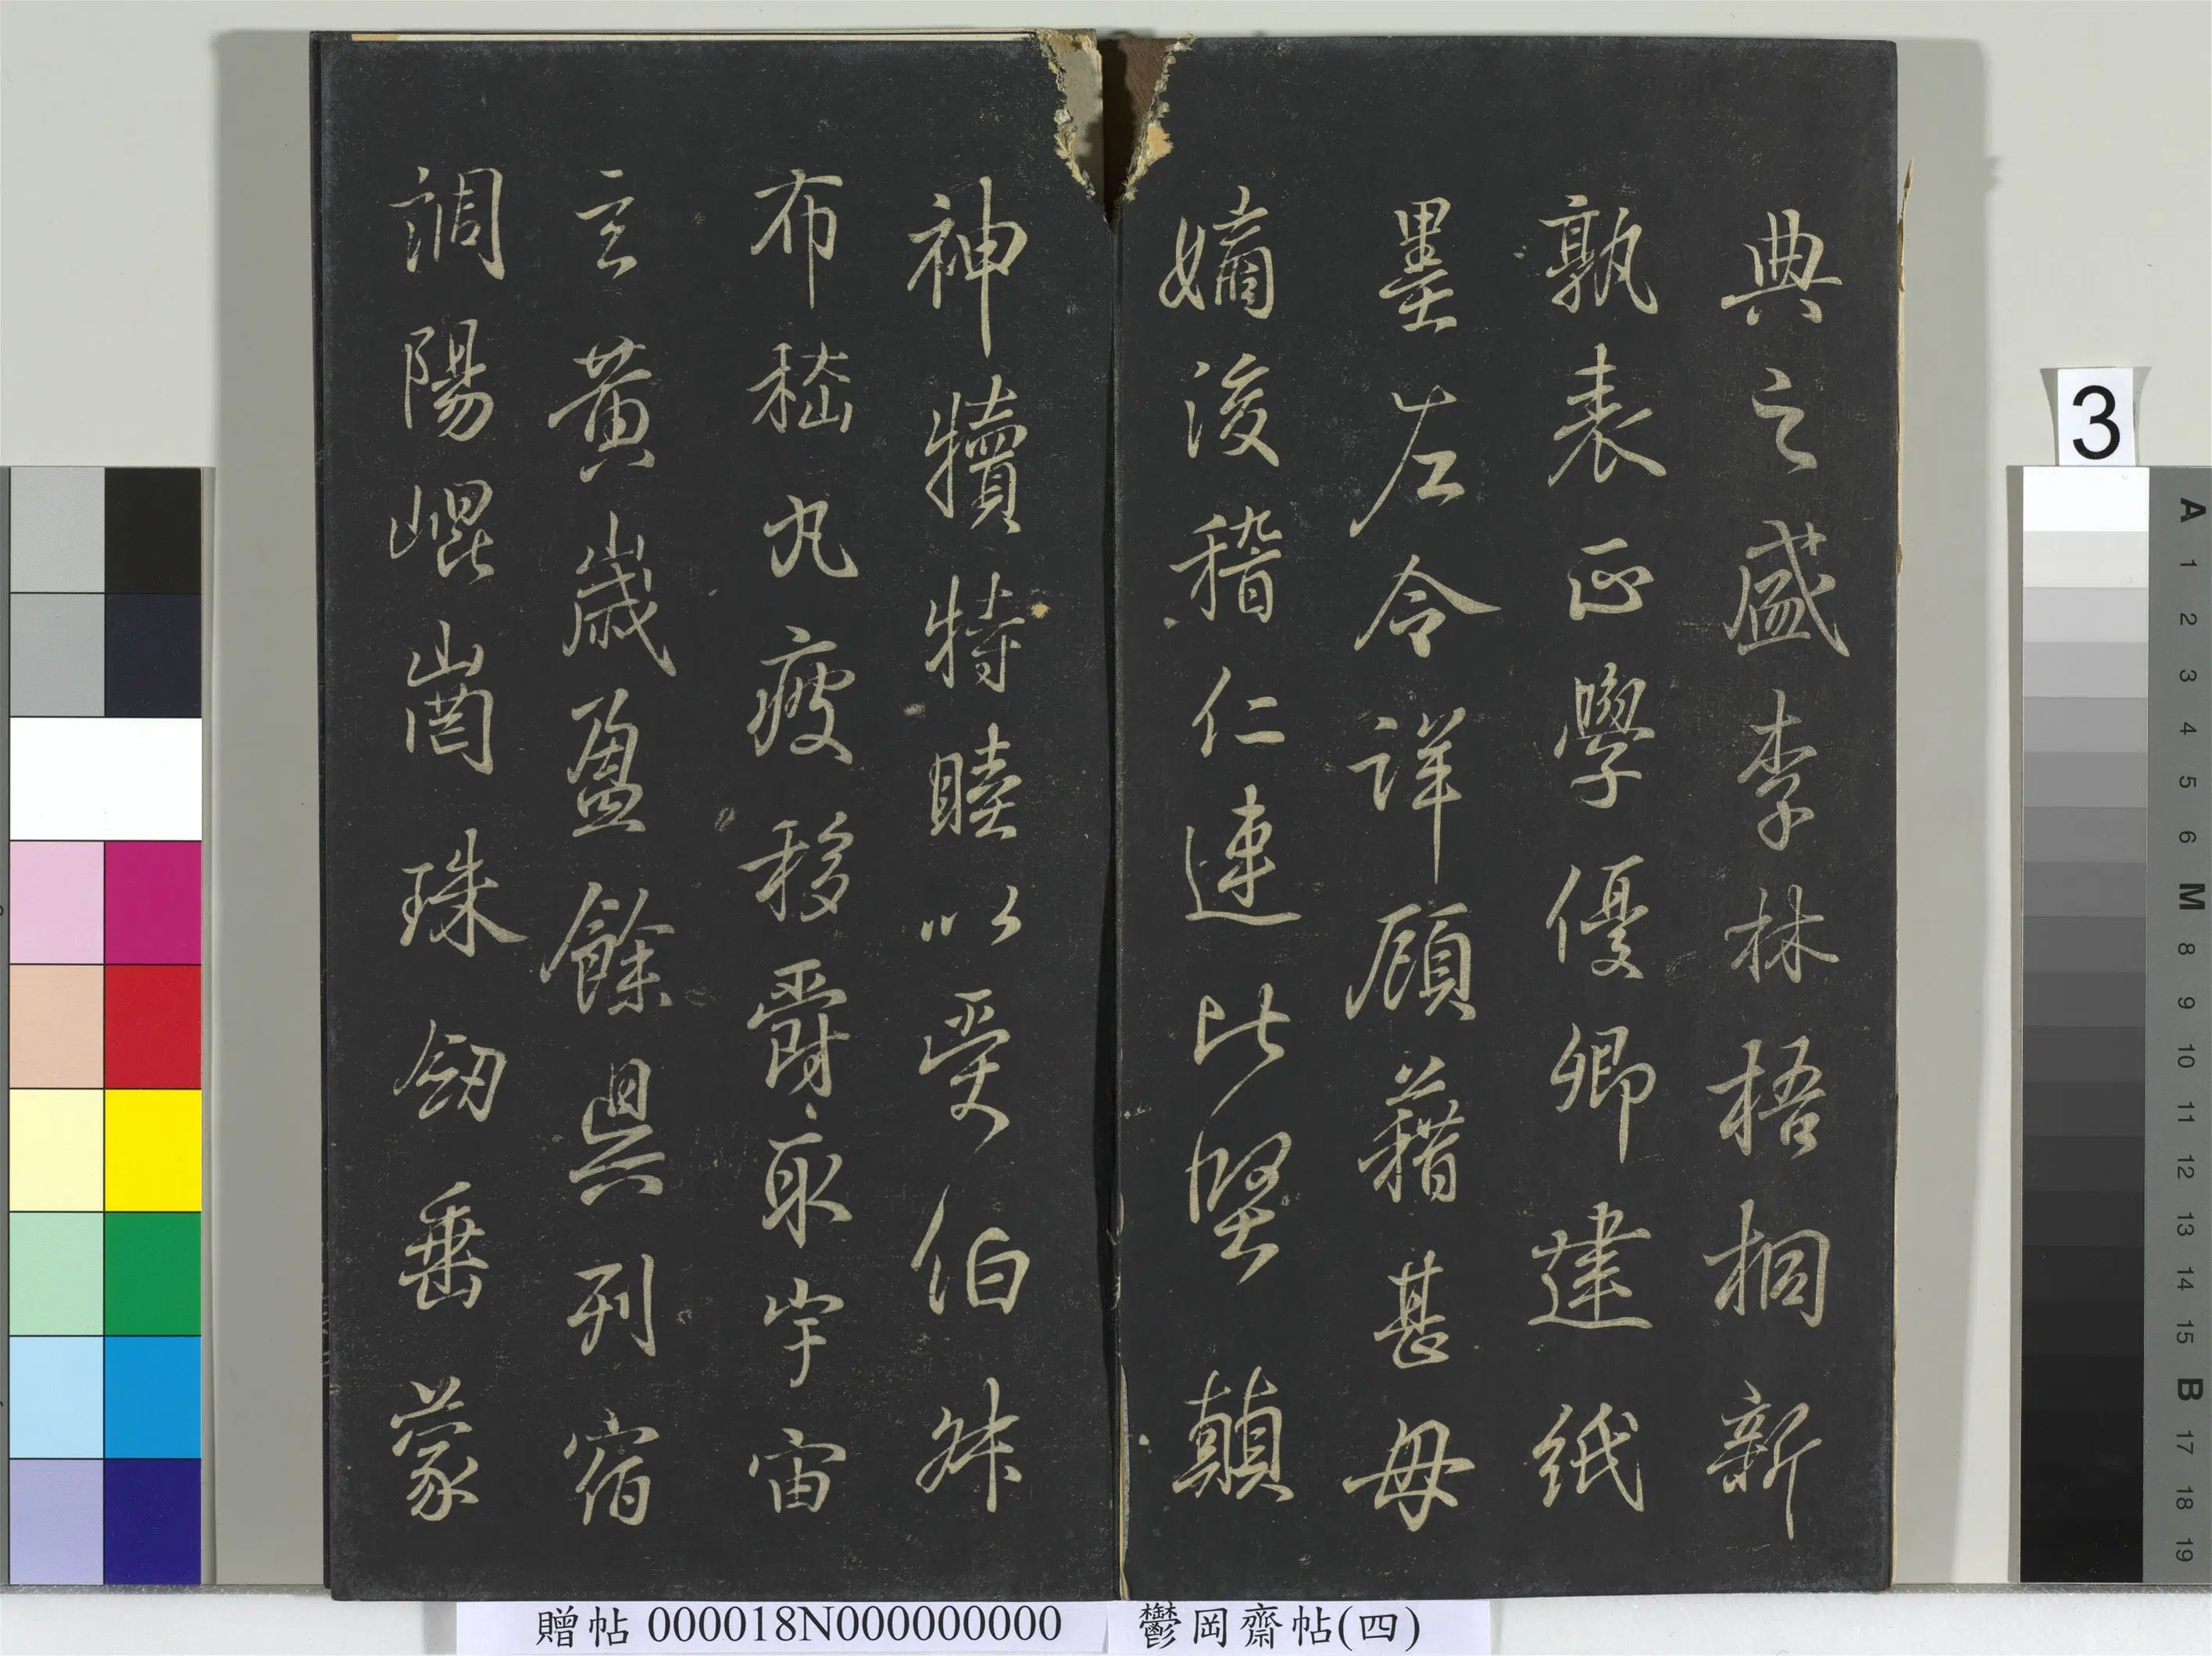 典之盛李林梧桐新
孰表正學優卿建紙
墨左令詳顧藉甚毋
嫡後稽仁連比堅顛
神犢特睦以受伯叔
布嵇丸疲移爵取宇宙
玄黃歲盈餘具列宿
調陽崐崗珠釼垂蒙
3
A 1 2 3 4 5 6 M 8 9 10 11 12 13 14 15 B 17 18 19
贈帖 000018N000000000 鬱岡齋帖(四)